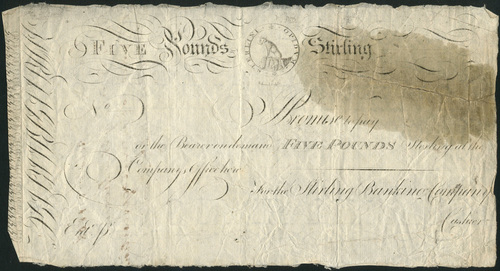 FIVE Pounds Stirling
No
I Promise to pay
or the Bearer on demand FIVE POUNDS Sterling at the
Company's Office here
For the Stirling Banking Company
Cashier